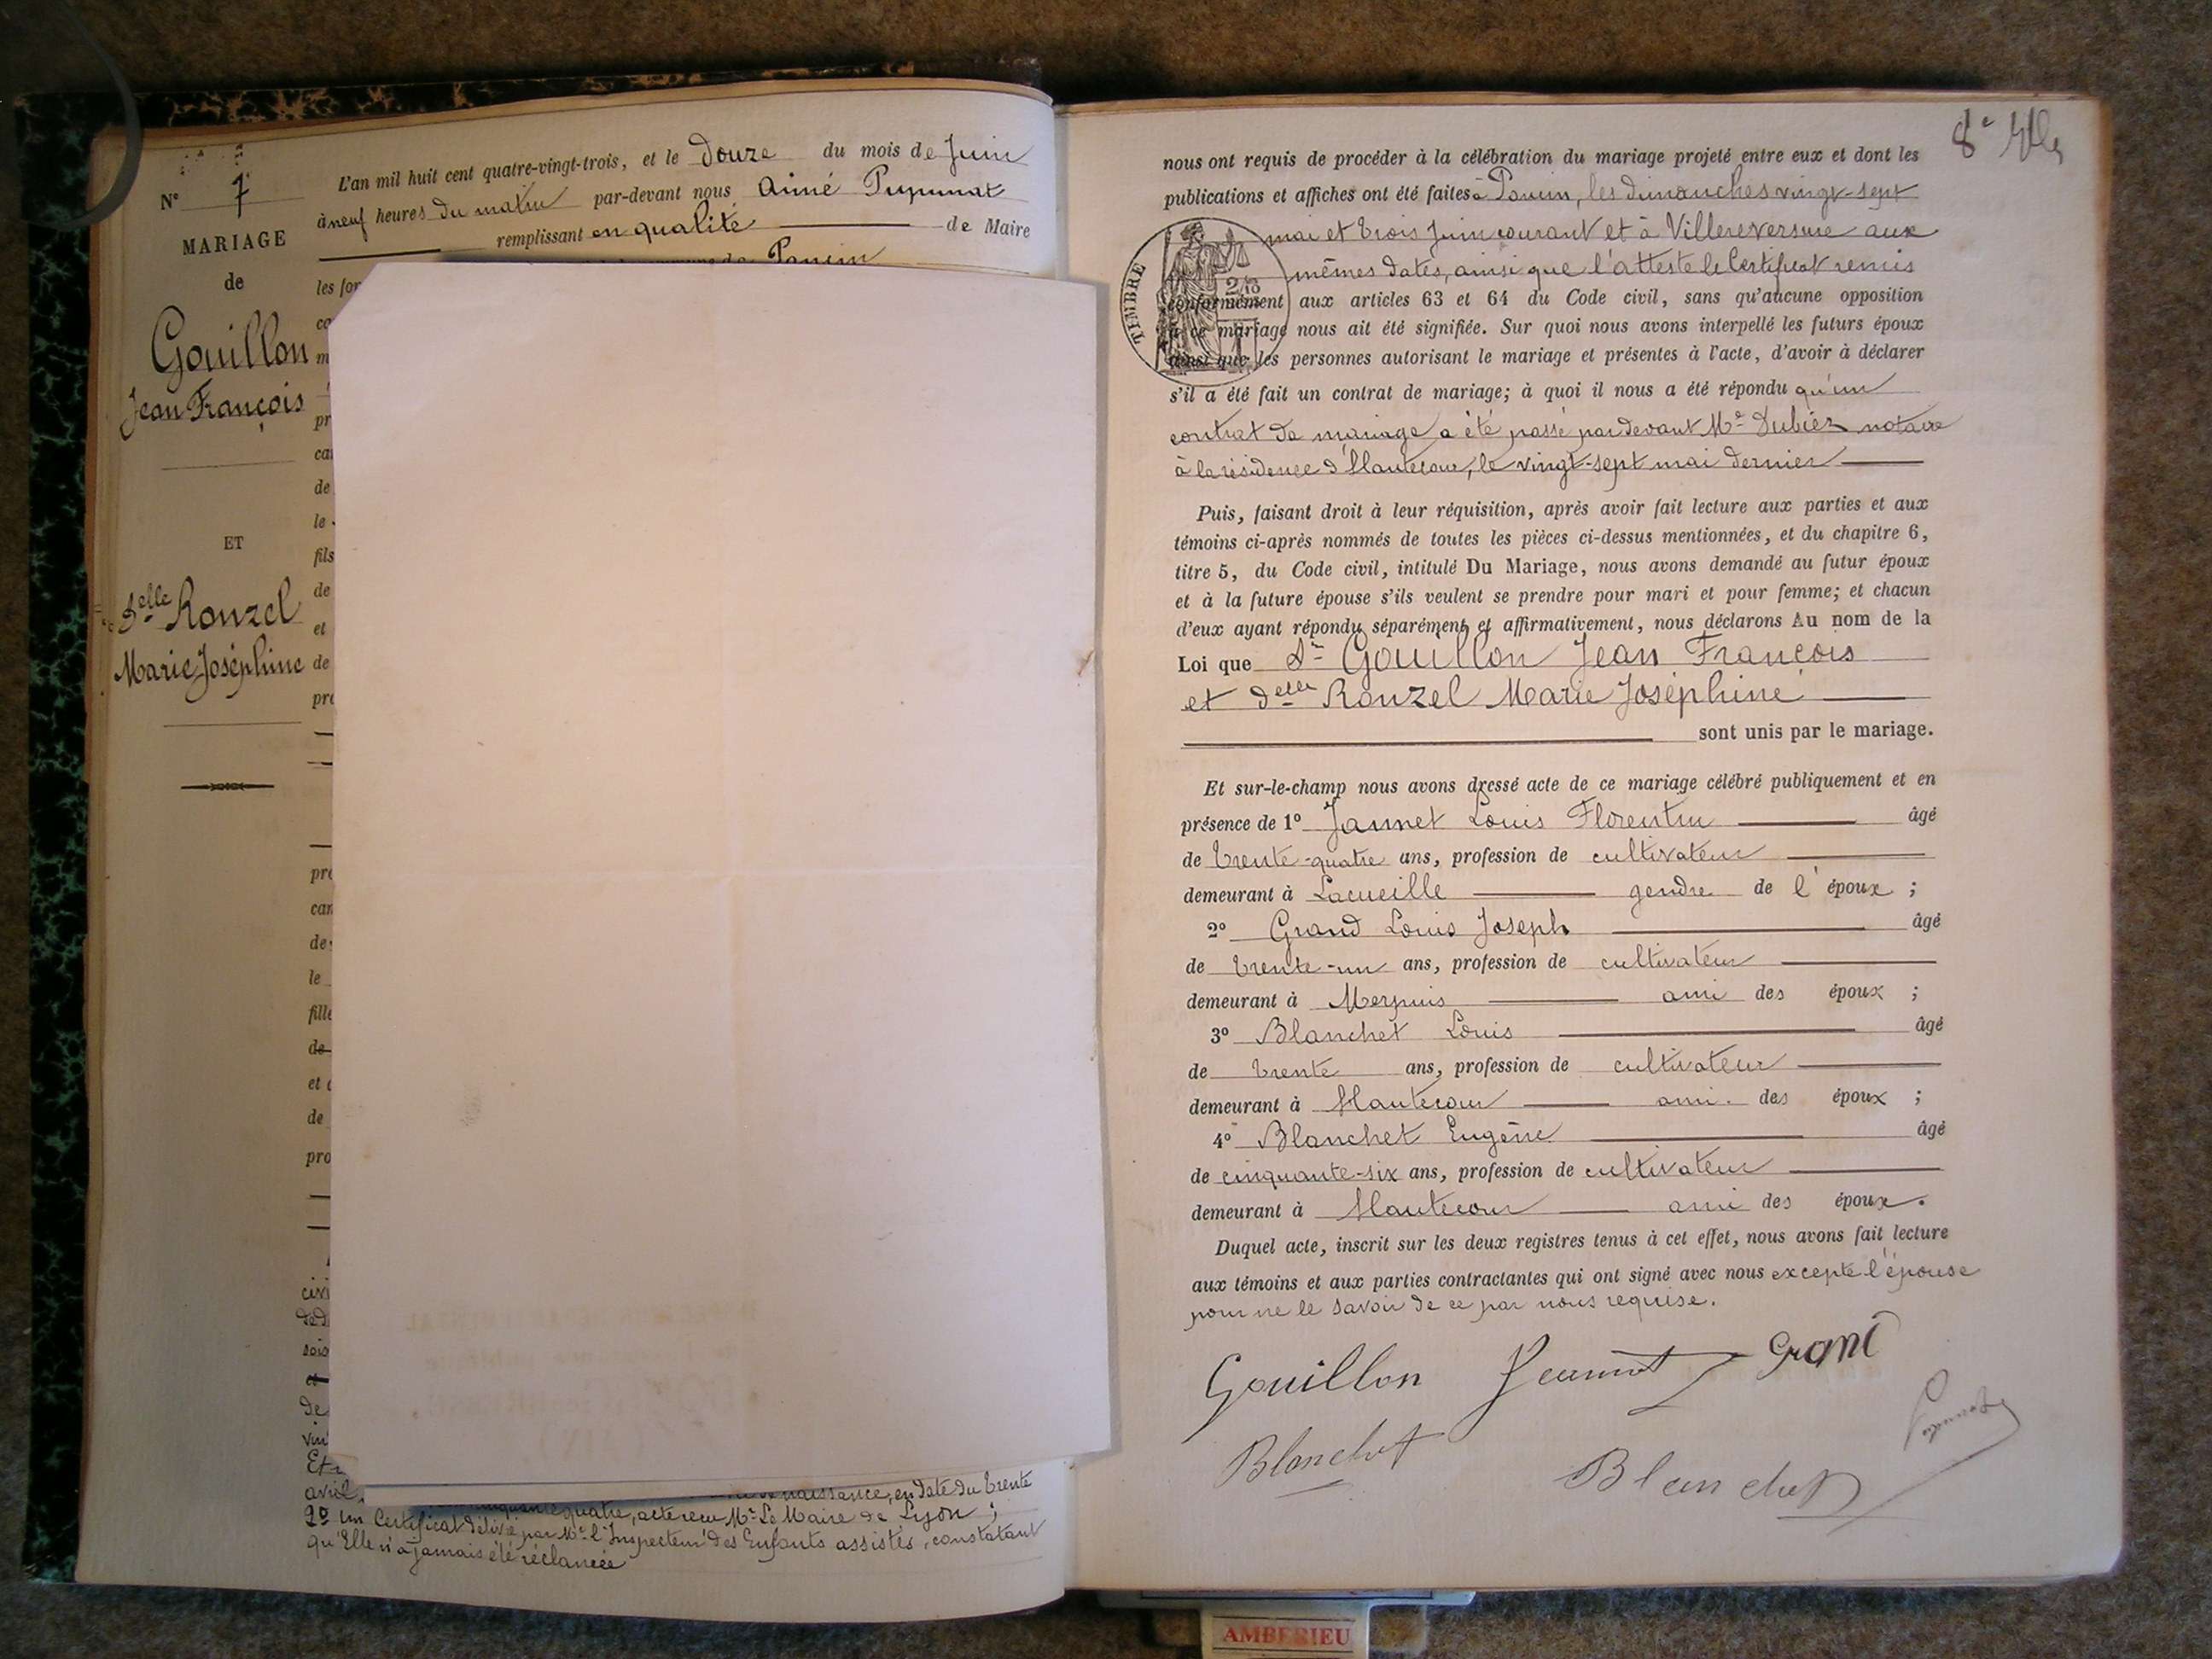 N° 7
MARIAGE
de
Gouillon
Jean François
ET
Delle Ronzel
Marie Joséphine
L'an mil huit cent quatre-vingt-trois, et le Douze du mois de Juin
à neuf heures du matin par-devant nous Aimé
remplissant en qualité de Maire
les
de
le
fils
de
et
de
de
le
de
et
de
naissance, en date du trente
avril
quatre, acte reçu Mr Le Maire de Lyon ;
2° un Certificat délivré par Mr l'Inspecteur des Enfants assistés, constatant
qu'Elle n'a jamais été réclamée
8e
nous ont requis de procéder à la célébration du mariage projeté entre eux et dont les
publications et affiches ont été faites à les dimanches vingt-sept
mai et trois Juin courant et à Villereversure aux
mêmes dates, ainsi que l'atteste le Certificat remis
TIMBRE
conformément aux articles 63 et 64 du Code civil, sans qu'aucune opposition
à ce mariage nous ait été signifiée. Sur quoi nous avons interpellé les futurs époux
ainsi que les personnes autorisant le mariage et présentes à l'acte, d'avoir à déclarer
s'il a été fait un contrat de mariage; à quoi il nous a été répondu qu'un
contrat de mariage a été passé par devant Me notaire
à la résidence d'Hautecour, le vingt-sept mai dernier
Puis, faisant droit à leur réquisition, après avoir fait lecture aux parties et aux
témoins ci-après nommés de toutes les pièces ci-dessus mentionnées, et du chapitre 6,
titre 5, du Code civil, intitulé Du Mariage, nous avons demandé au futur époux
et à la future épouse s'ils veulent se prendre pour mari et pour femme; et chacun
d'eux ayant répondu séparément et affirmativement, nous déclarons Au nom de la
Loi que Sr Gouillon Jean François
et delle Ronzel Marie Joséphine
sont unis par le mariage.
Et sur-le-champ nous avons dressé acte de ce mariage célébré publiquement et en
présence de 1° Jannet Louis Florentin âgé
de trente-quatre ans, profession de cultivateur
demeurant à Lacueille gendre de l'époux ;
2° Grand Louis Joseph âgé
de trente-un ans, profession de cultivateur
demeurant à Merpuis ami des époux ;
3° Blanchet Louis âgé
de trente ans, profession de cultivateur
demeurant à Hautecour ami des époux ;
4° Blanchet Eugène âgé
de cinquante-six ans, profession de cultivateur
demeurant à Hautecour ami des époux.
Duquel acte, inscrit sur les deux registres tenus à cet effet, nous avons fait lecture
aux témoins et aux parties contractantes qui ont signé avec nous excepté l'épouse
pour ne le savoir de ce par nous requise.
Gouillon Jeannet Grand
Blanchet Blanchet
AMBERIEU